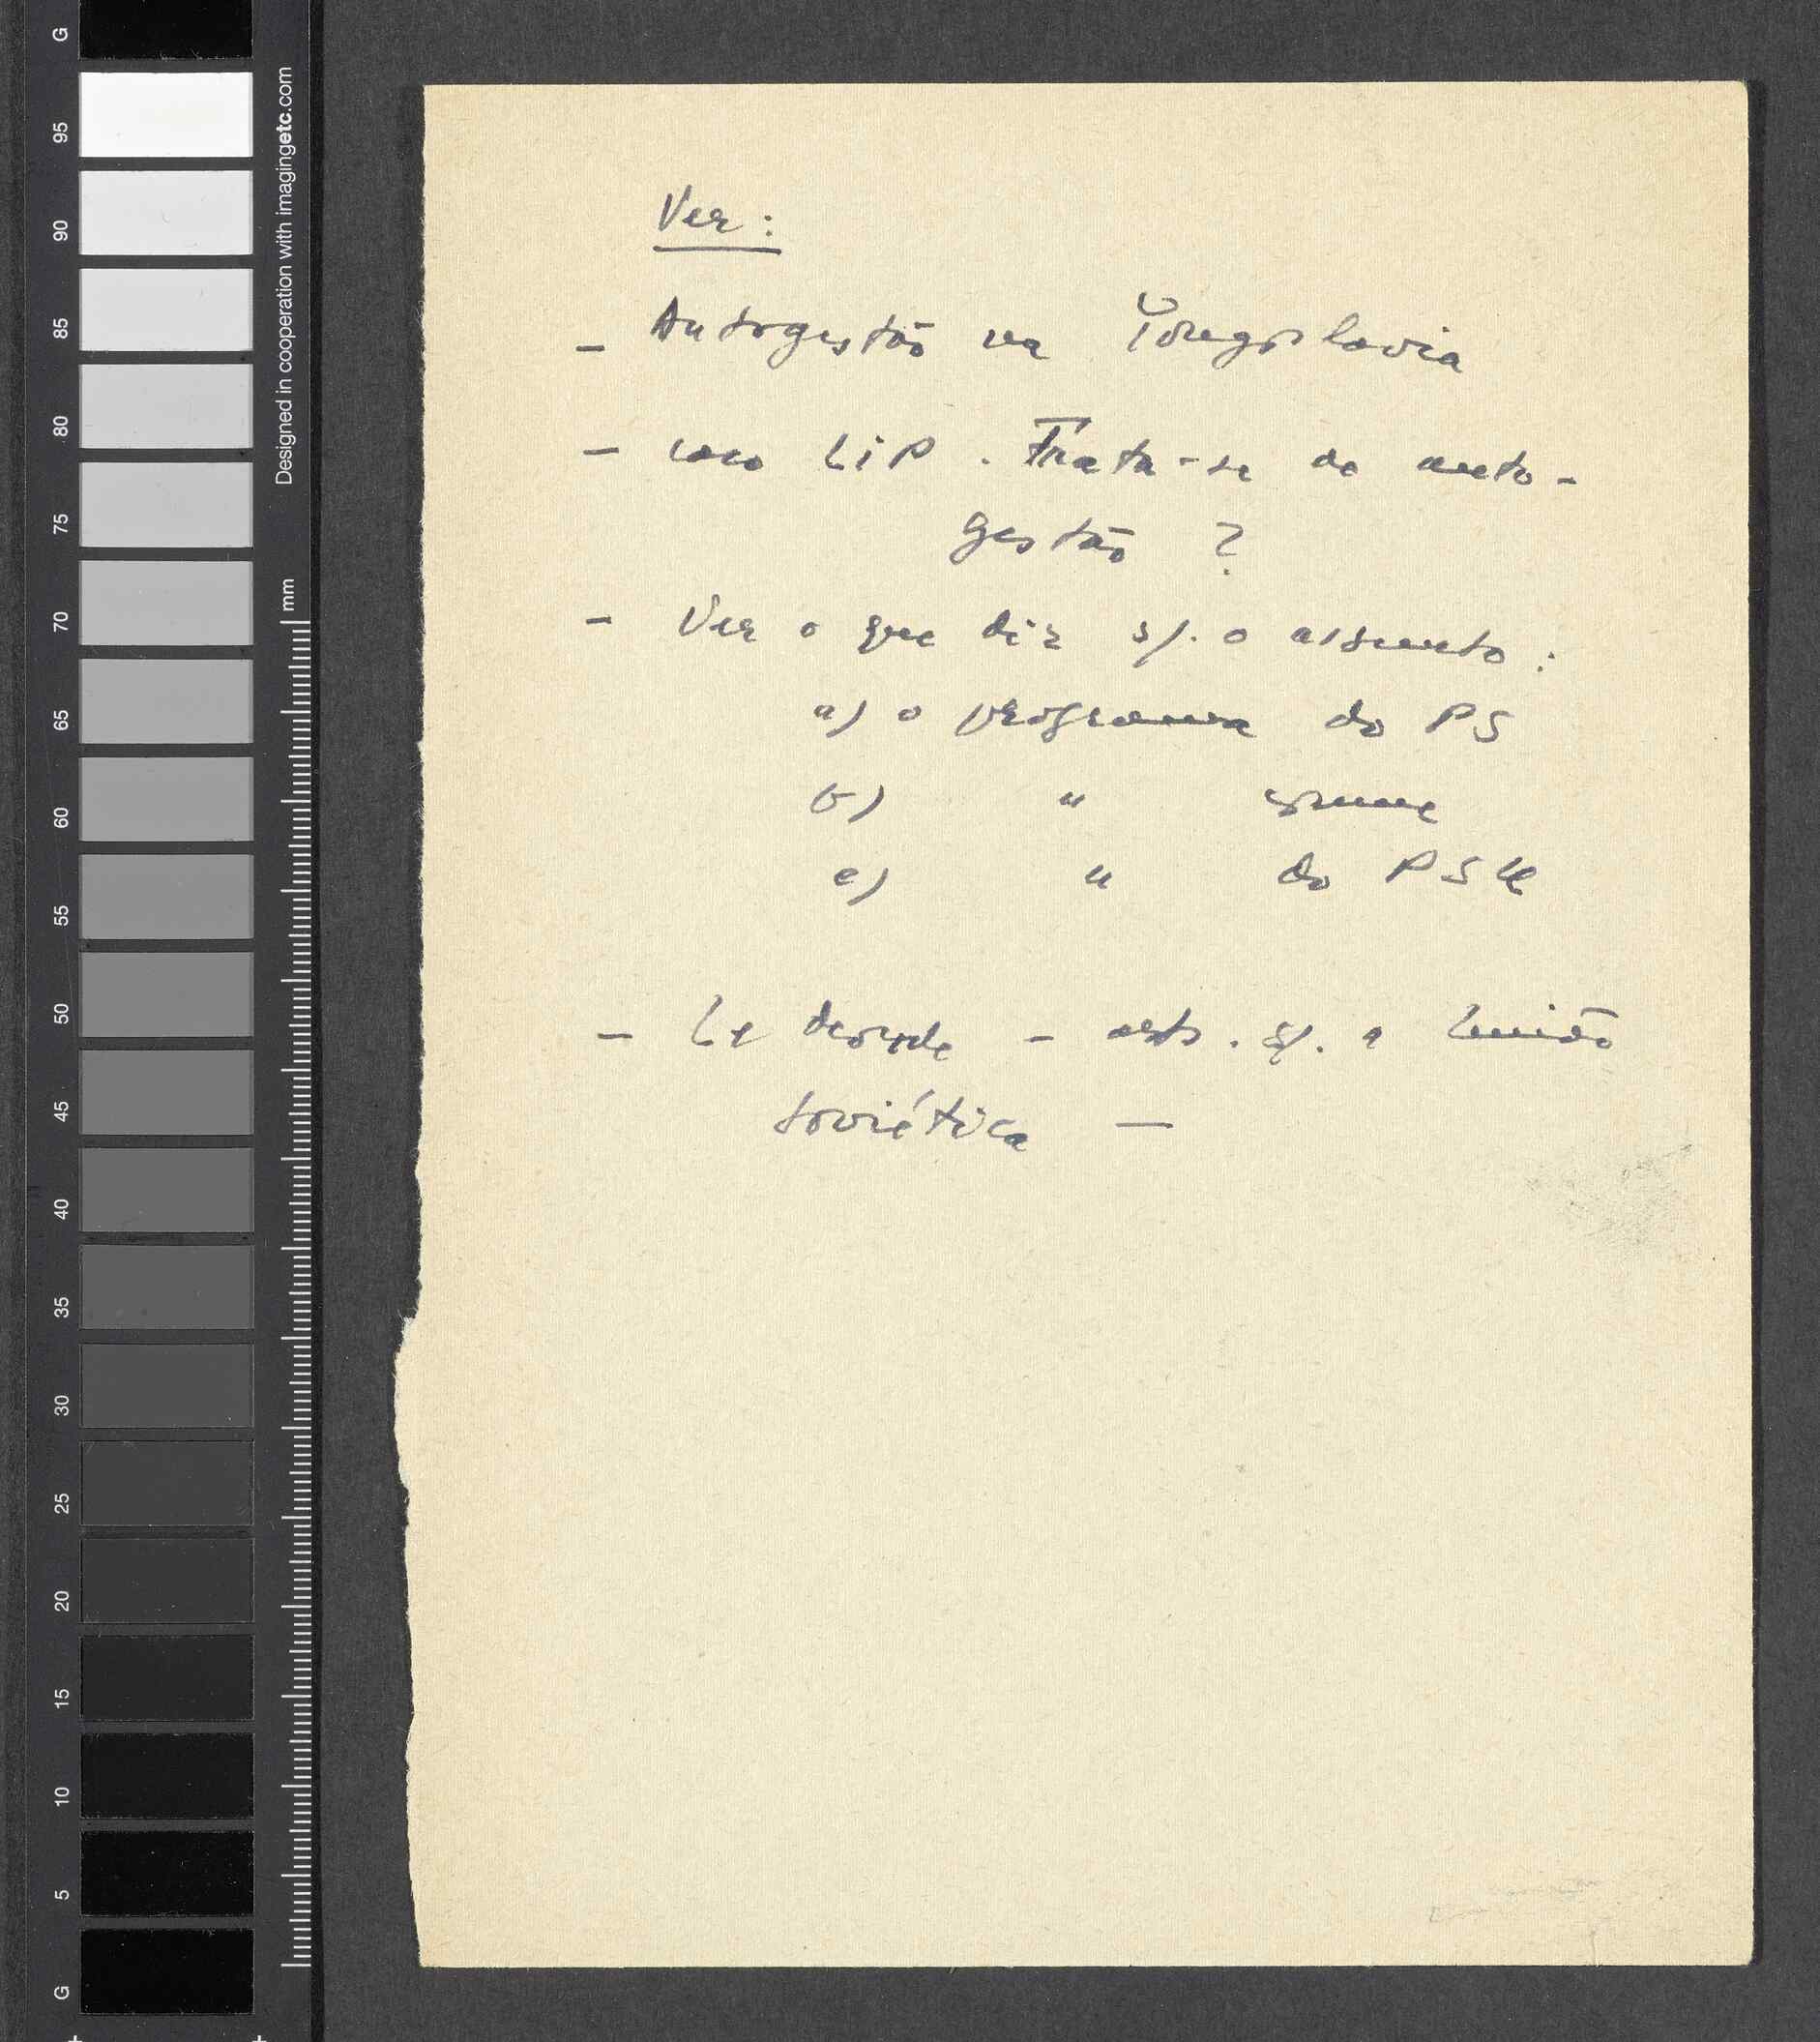 G
95
90
85
80
75
70
65
60
55
50
45
40
35
30
25
20
15
10
5
G
Designed in cooperation with imagingetc.com
mm
Ver :
- Autogestão na Iougoslavia
- caso LiP . Trata-se de auto-
gestão ?
- Ver o que diz s/. o assunto :
a) o programa do PS
b) " comum
c) " do PSU
- Le Monde - arts . s/. a União
Soviética —